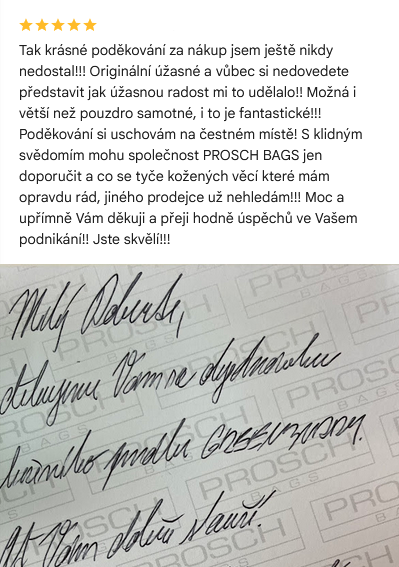 Tak krásné poděkování za nákup jsem ještě nikdy
nedostal!!! Originální úžasné a vůbec si nedovedete
představit jak úžasnou radost mi to udělalo!! Možná i
větší než pouzdro samotné, i to je fantastické!!!
Poděkování si uschovám na čestném místě! S klidným
svědomím mohu společnost PROSCH BAGS jen
doporučit a co se tyče kožených věcí které mám
opravdu rád, jiného prodejce už nehledám!!! Moc a
upřímně Vám děkuji a přeji hodně úspěchů ve Vašem
podnikání!! Jste skvělí!!!
Milý Roberte,
děkujeme Vám za objednávku
koženého
Ať Vám dobře slouží!
PROSCH
BAGS